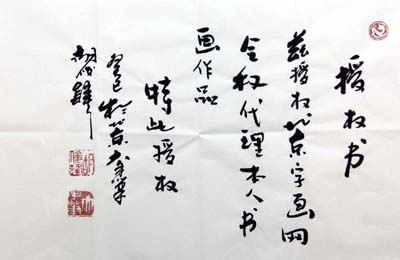 授权书
兹授权北京字画网
全权代理本人书
画作品
特此授权
癸巳於北京